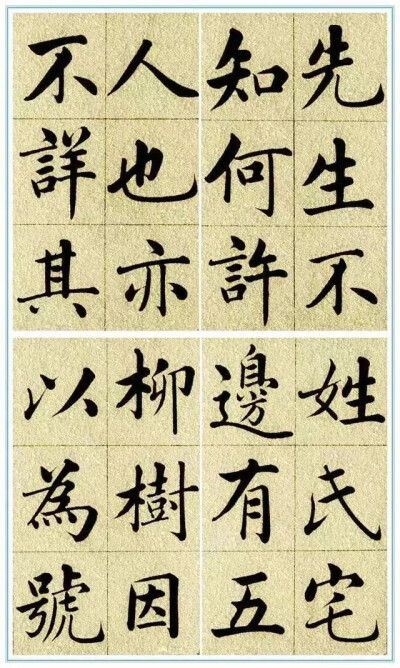 先生不
知何許
人也亦
不詳其
姓氏宅
邊有五
柳樹因
以為號